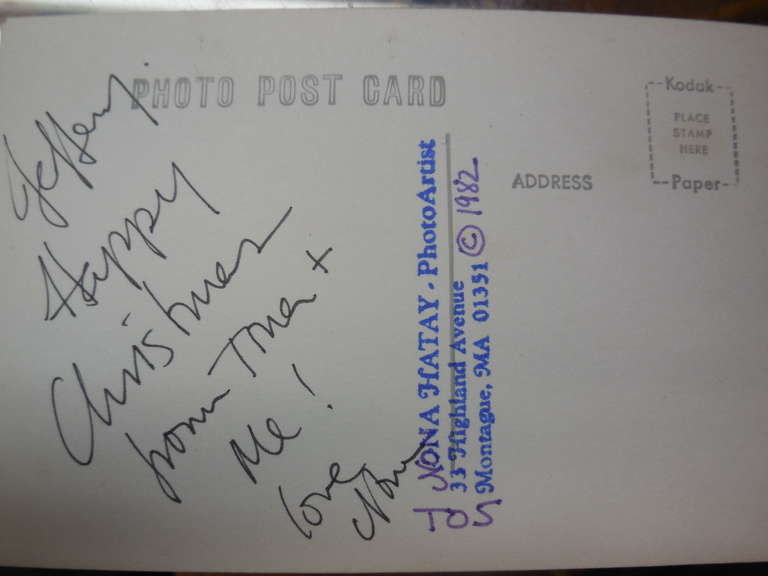 PHOTO POST CARD
Jeffery,
Happy
Christmas
from Tina +
Me!
love
Nona
NONA HATAY - PhotoArtist
33 Highland Avenue
Montague, MA 01351 © 1982
ADDRESS
Kodak
PLACE
STAMP
HERE
Paper